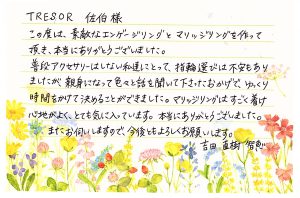 TRESOR 佐伯様
この度は、素敵なエンゲージリングとマリッジリングを作って
頂き、本当にありがとうございました。
普段アクセサリーはしない私達にとって、指輪選びは不安もあり
ましたが親身になって色々と話を聞いて下さったおかげで、ゆっくり
時間をかけて決めることができました。マリッジリングはすごく着け
心地がよく、とても気に入っています。本当にありがとうございました。
またお伺いしますので、今後ともよろしくお願いします。
吉田 直樹